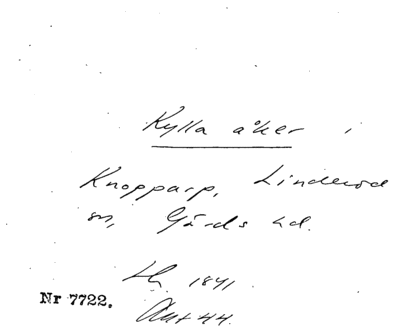 Kylla åker i
Knopparp, Linderöd
sn, Gärds hd.
Lh. 1841
Nr 7722.
Akt 44.